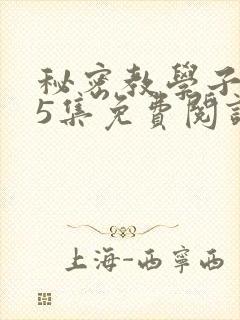 秘密教學子
5集免費閱
上海-西寧西